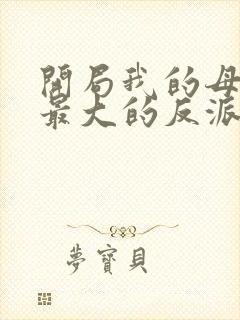 開局我的母
最大的反派
夢寶貝